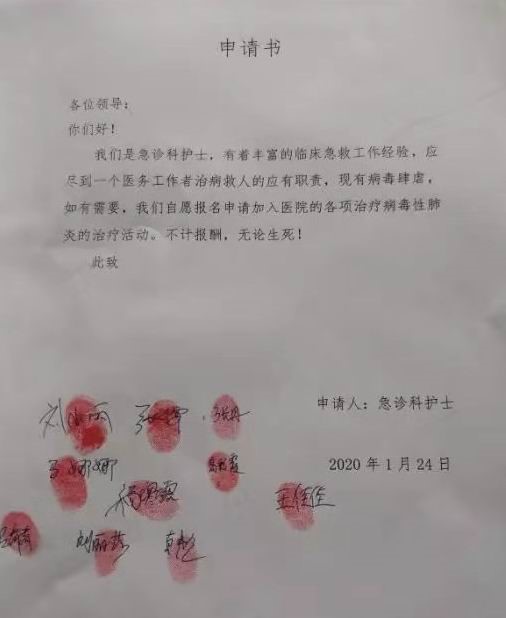 申请书
各位领导：
你们好！
我们是急诊科护士，有着丰富的临床急救工作经验，应
尽到一个医务工作者治病救人的应有职责，现有病毒肆虐，
如有需要，我们自愿报名申请加入医院的各项治疗病毒性肺
炎的治疗活动。不计报酬，无论生死！
此致
申请人：急诊科护士
刘小丽
2020 年 1 月 24 日
王佳佳